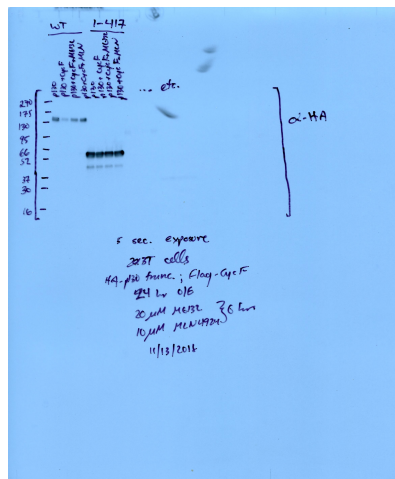 WT 1-417
p130
p130+CycF
p130+CycF+MG132
p130+CycF+MLN
p130
p130+CycF
p130+CycF+MG132
p130+CycF+MLN
... etc.
270
175
130
95
66
52
37
30
16
α-HA
5 sec. exposure
293T cells
HA-p130 trunc.; Flag-CycF
24 hr O/E
20 μM MG132
10 μM MLN4924 } 6 hrs
11/13/2018